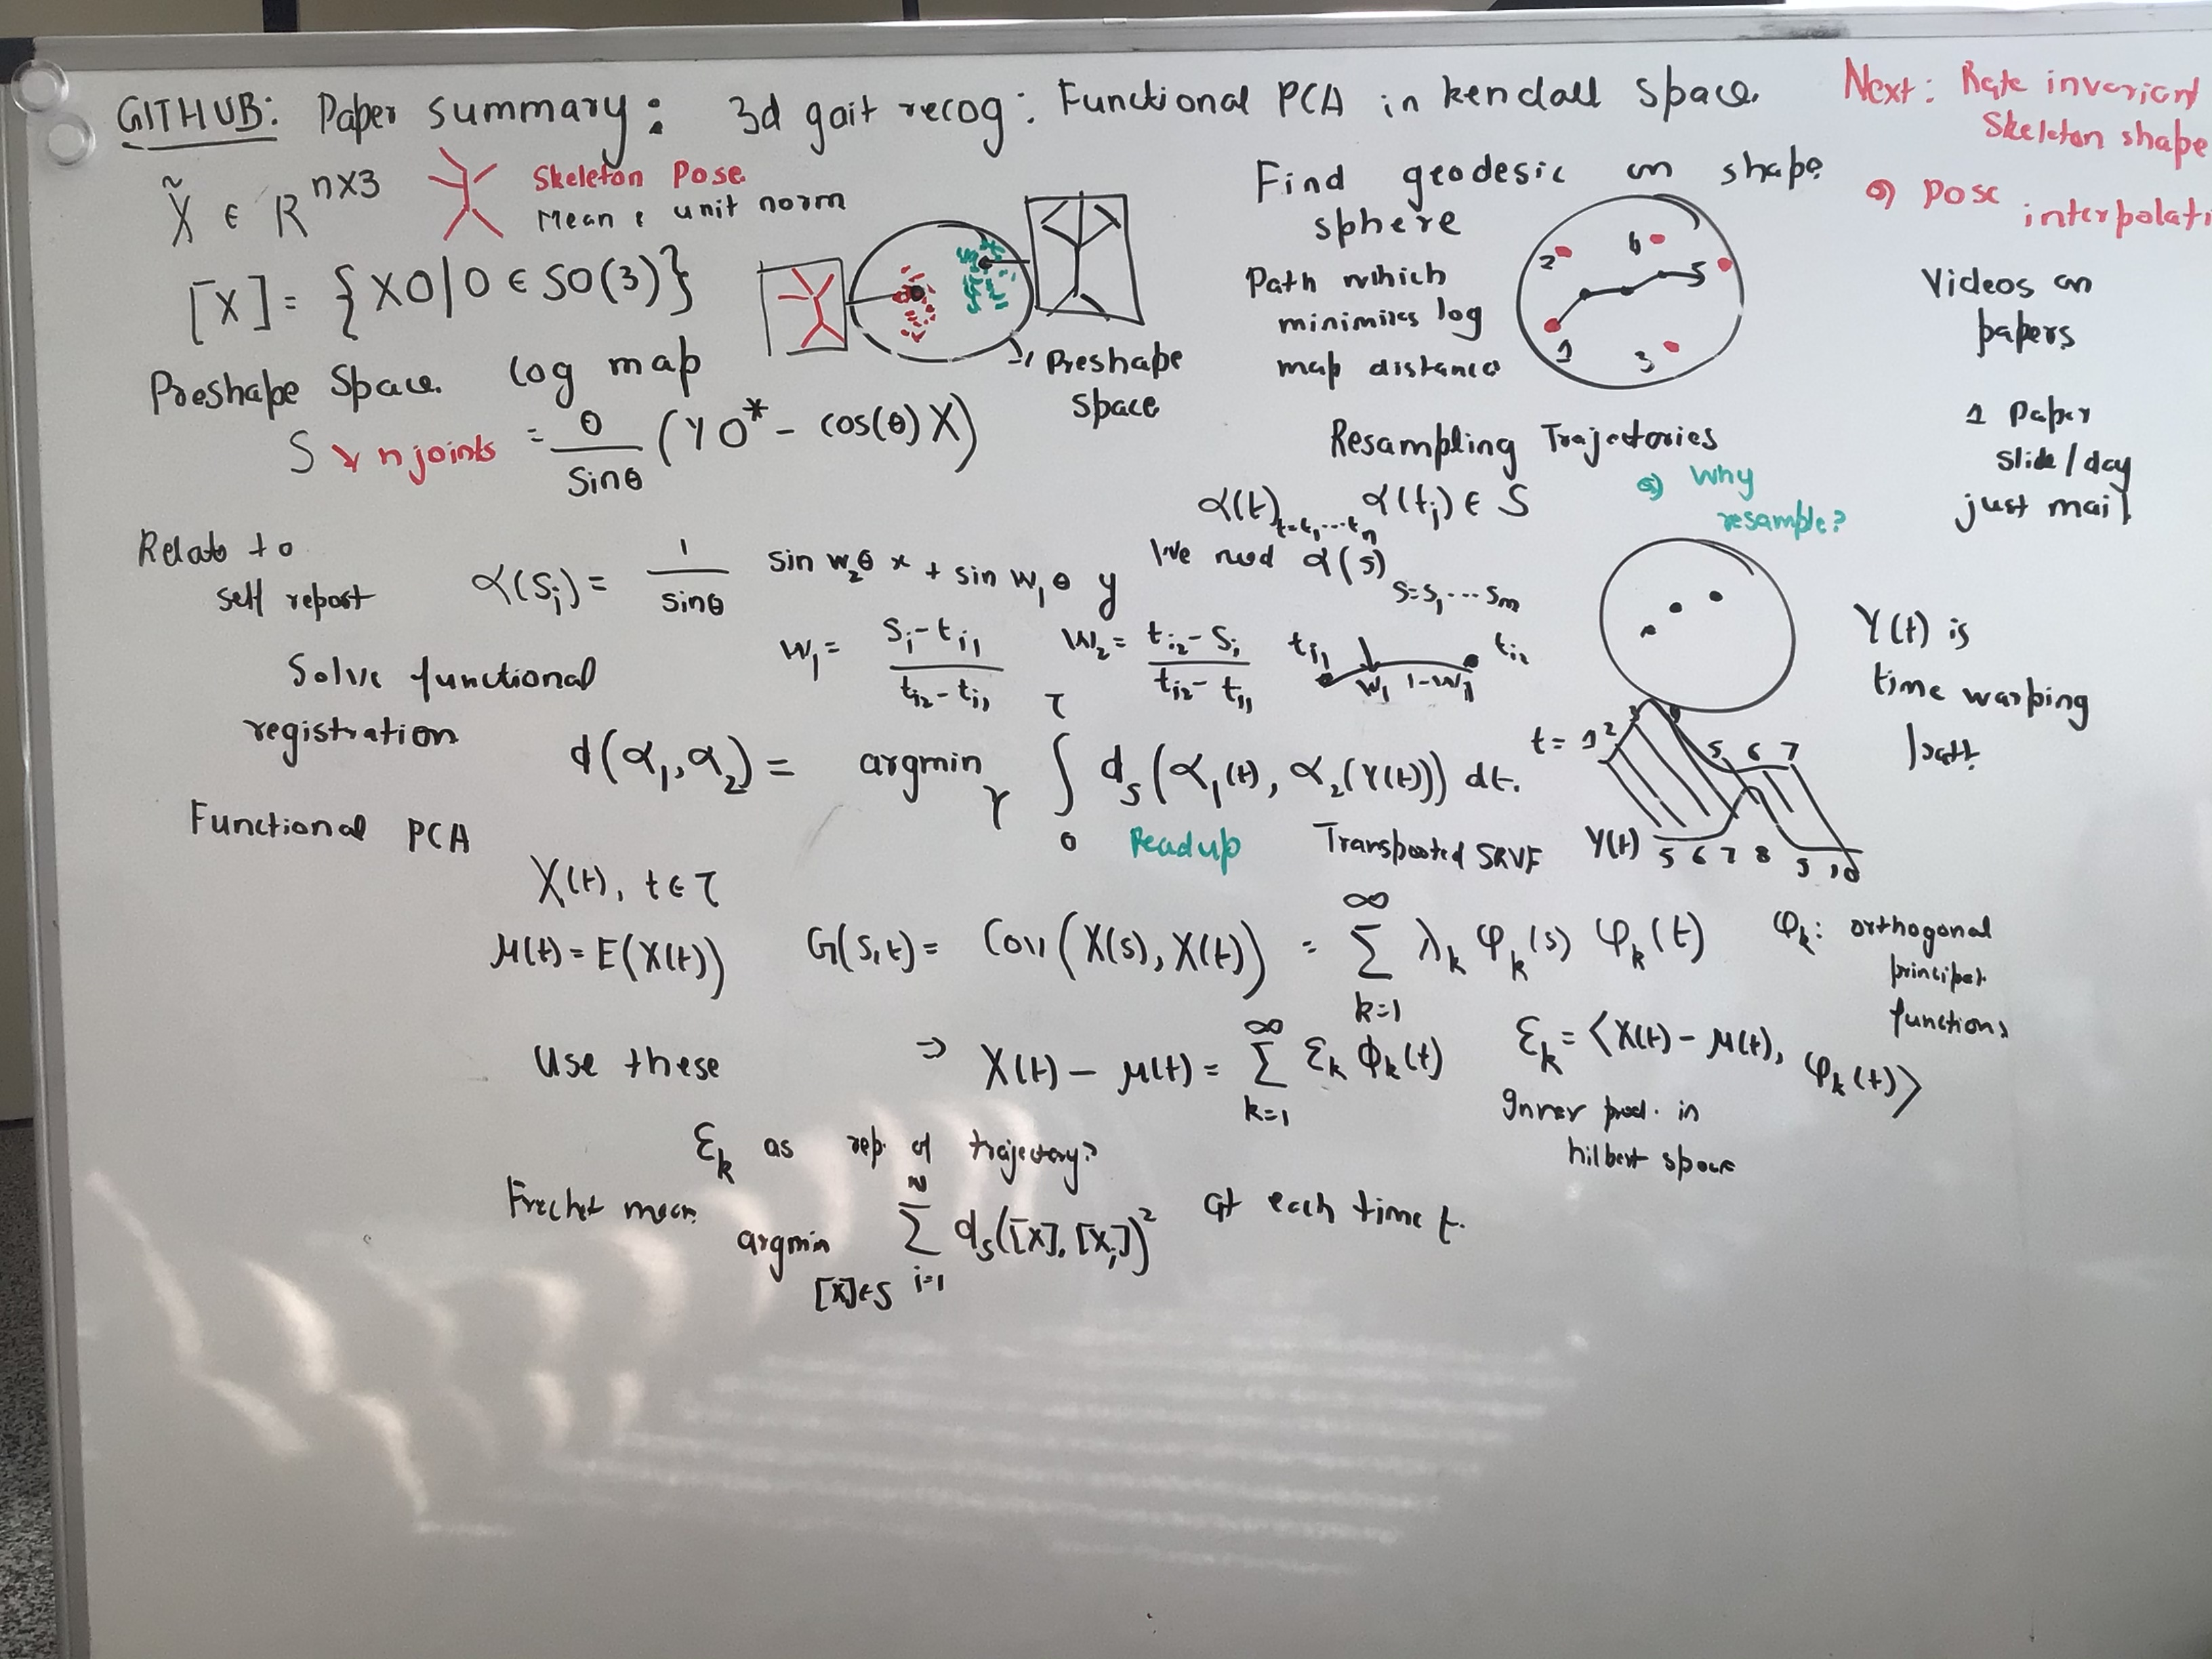 GITHUB: Paper summary: 3d gait recog: Functional PCA in kendall space.
Next: Rate invariant
Skeleton shape
X̃ ∈ R^{n×3}
Skeleton Pose
Mean & unit norm
[X] = {XO | O ∈ SO(3)}
Preshape Space. log map
S n joints = θ/Sinθ (YO* - cos(θ)X)
Preshape
space
Find geodesic on shape
sphere
Path which
minimizes log
map distance
1 2 3 4 5
Q) Pose
interpolati
Videos on
papers
1 Paper
slide/day
just mail
Resampling Trajectories
α(t)_{t=t₁...tₙ} α(t_i) ∈ S
Q) Why
resample?
We need α(s)
s=s₁...sₘ
Relate to
self report
α(s_i) = 1/sinθ sin w₂θ x + sin w₁θ y
w₁ = (s_i - t_{i1})/(t_{i2} - t_{i1}) w₂ = (t_{i2} - s_i)/(t_{i2} - t_{i1})
t_{i1} w₁ 1-w₁ t_{i2}
Solve functional
registration
d(α₁, α₂) = argmin_γ ∫₀^τ d_s(α₁(t), α₂(γ(t))) dt.
Readup Transported SRVF
γ(t) is
time warping
t = 1 2 3 4 5 6 7
γ(t) 5 6 7 8 9 10
Functional PCA
X(t), t ∈ τ
μ(t) = E(X(t)) G(s,t) = Cov(X(s), X(t)) = Σ_{k=1}^∞ λ_k φ_k(s) φ_k(t)
φ_k: orthogonal
principal
functions
Use these ⇒ X(t) - μ(t) = Σ_{k=1}^∞ ξ_k ϕ_k(t) ξ_k = ⟨X(t) - μ(t), φ_k(t)⟩
Inner prod. in
hilbert space
ξ_k as rep. of trajectory?
Frechet mean argmin_{[X]∈S} Σ_{i=1}^N d_s([X], [X_i])² at each time t.